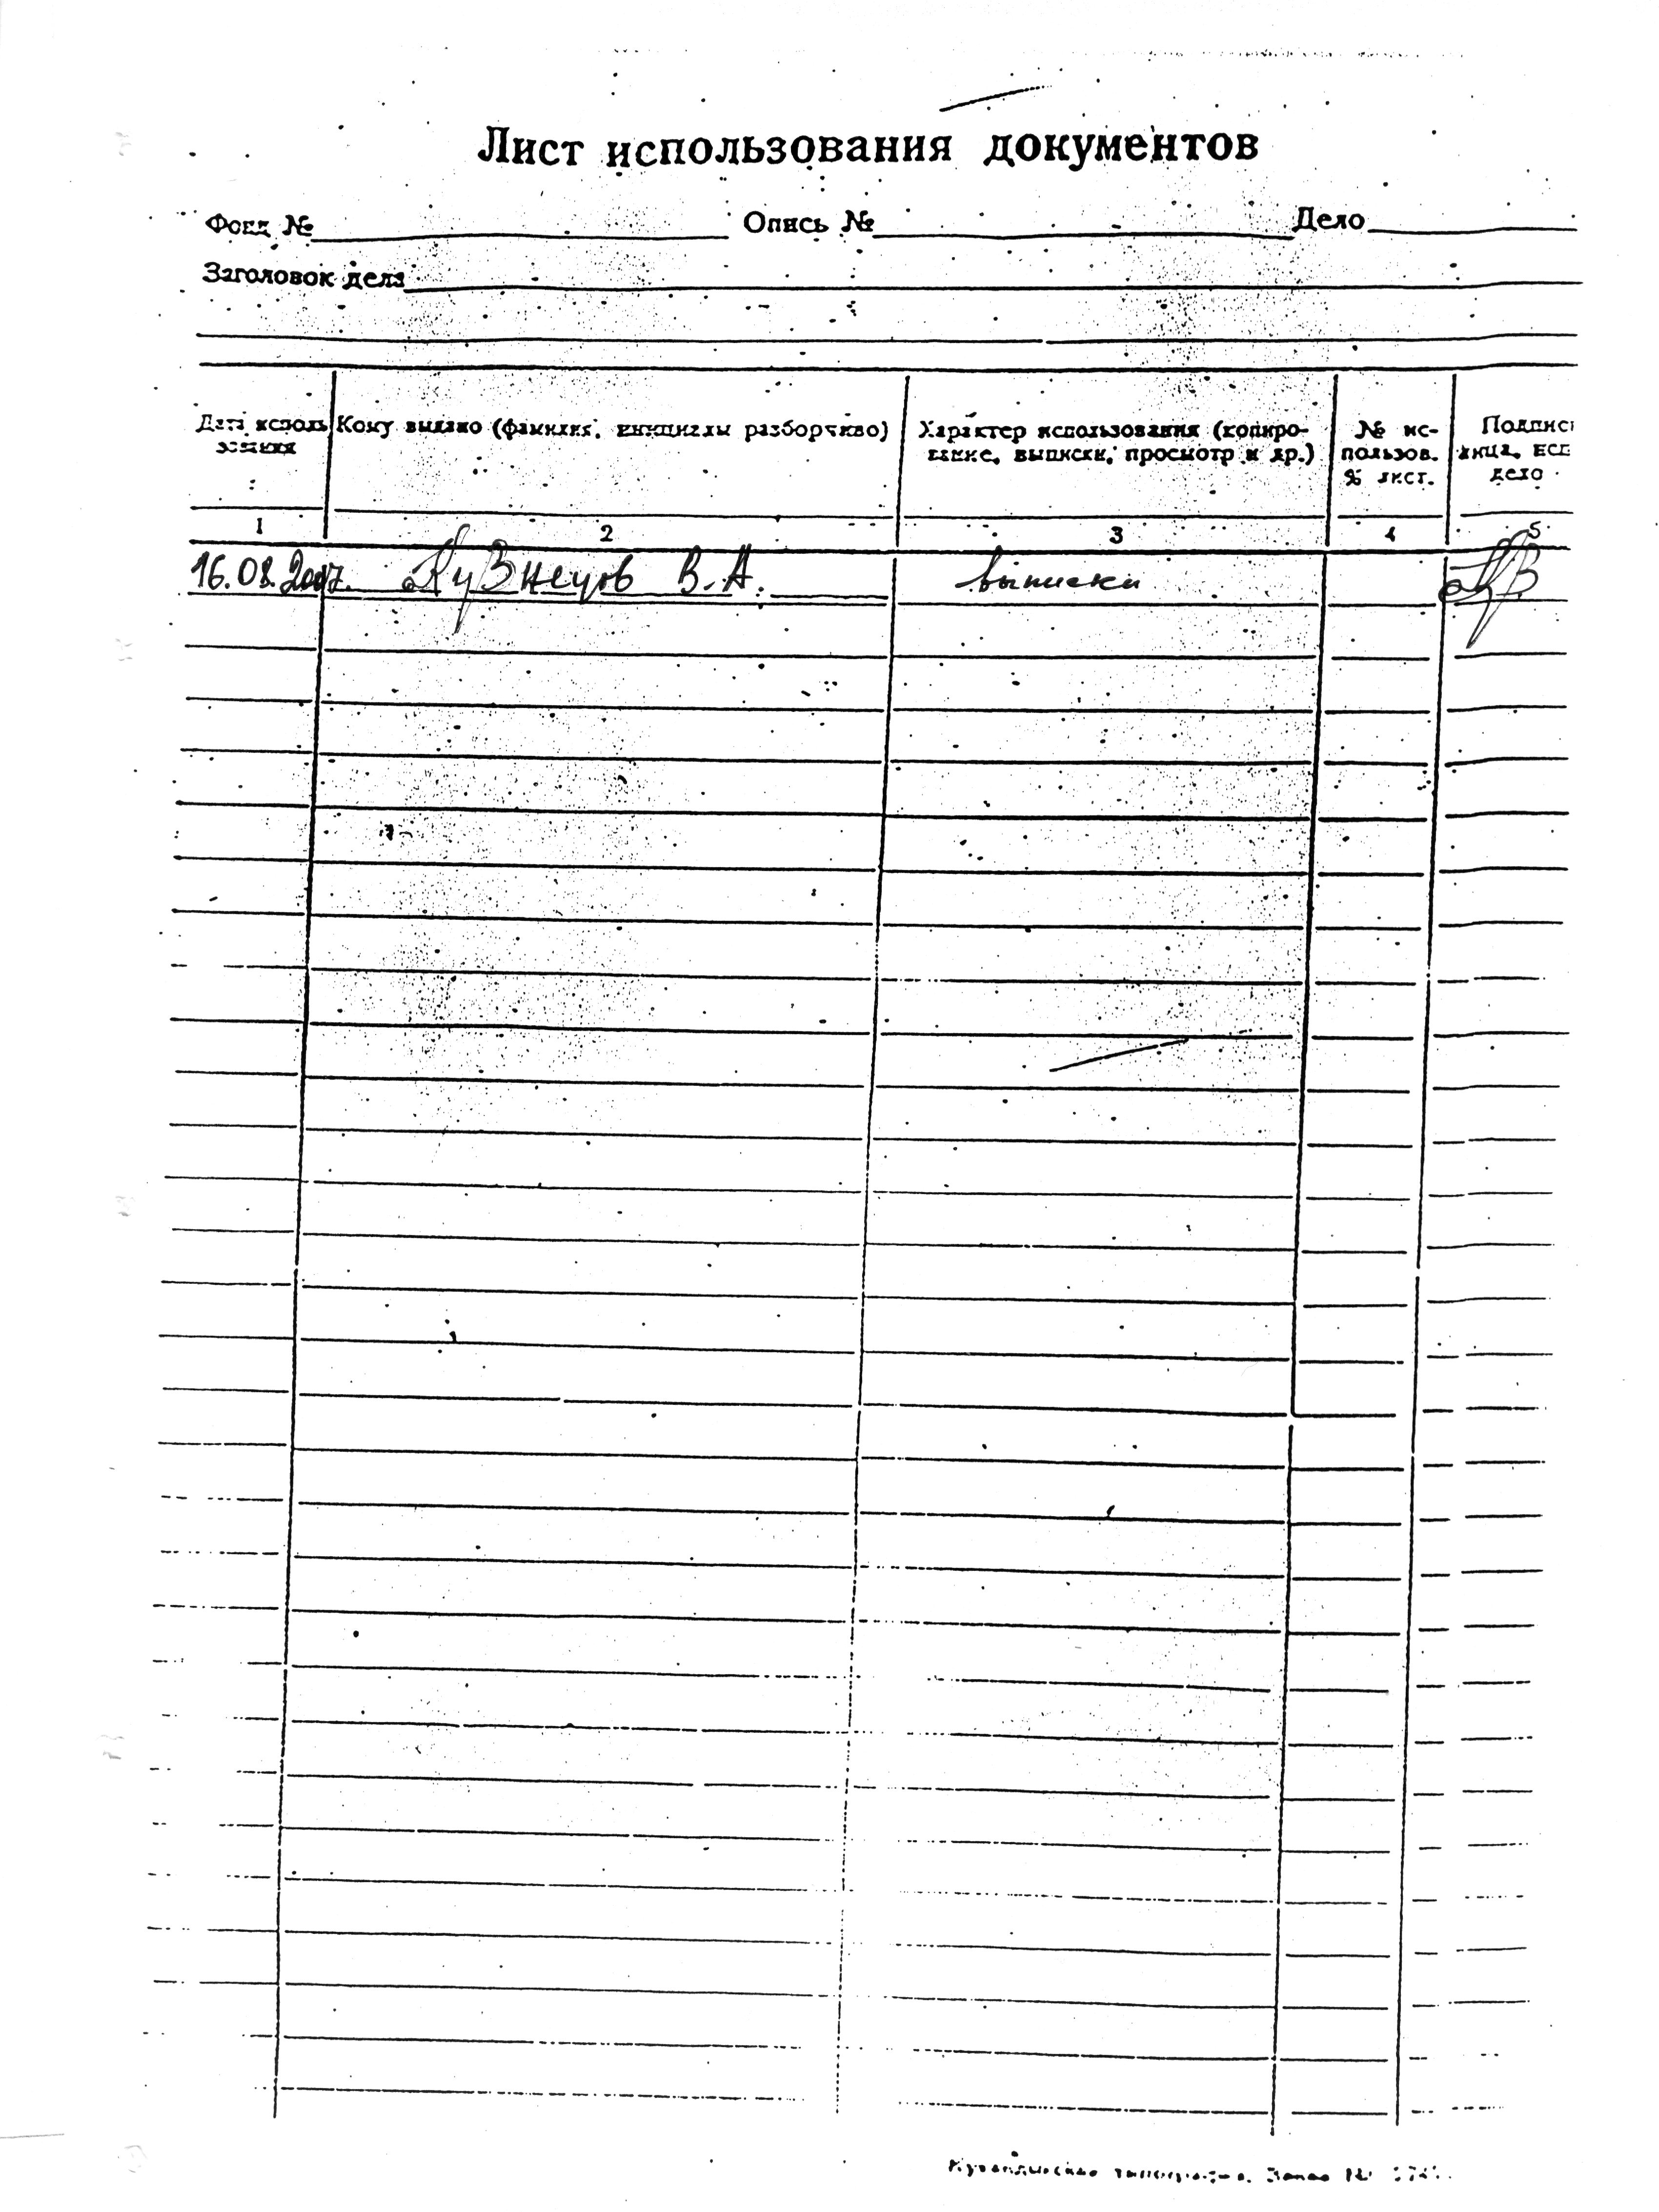 Лист использования документов
Фонд № Опись № Дело
Заголовок дела
Дата исполь Кому выдано (фамилия, инициалы разборчиво) Характер использования (копиро- № ис- Подпис
зования вание, выписки, просмотр и др.) пользов. лица, исп
% лист. дело
1 2 3 4 5
16.08.2007. Кузнецов В.А. выписки
типография. Заказ №